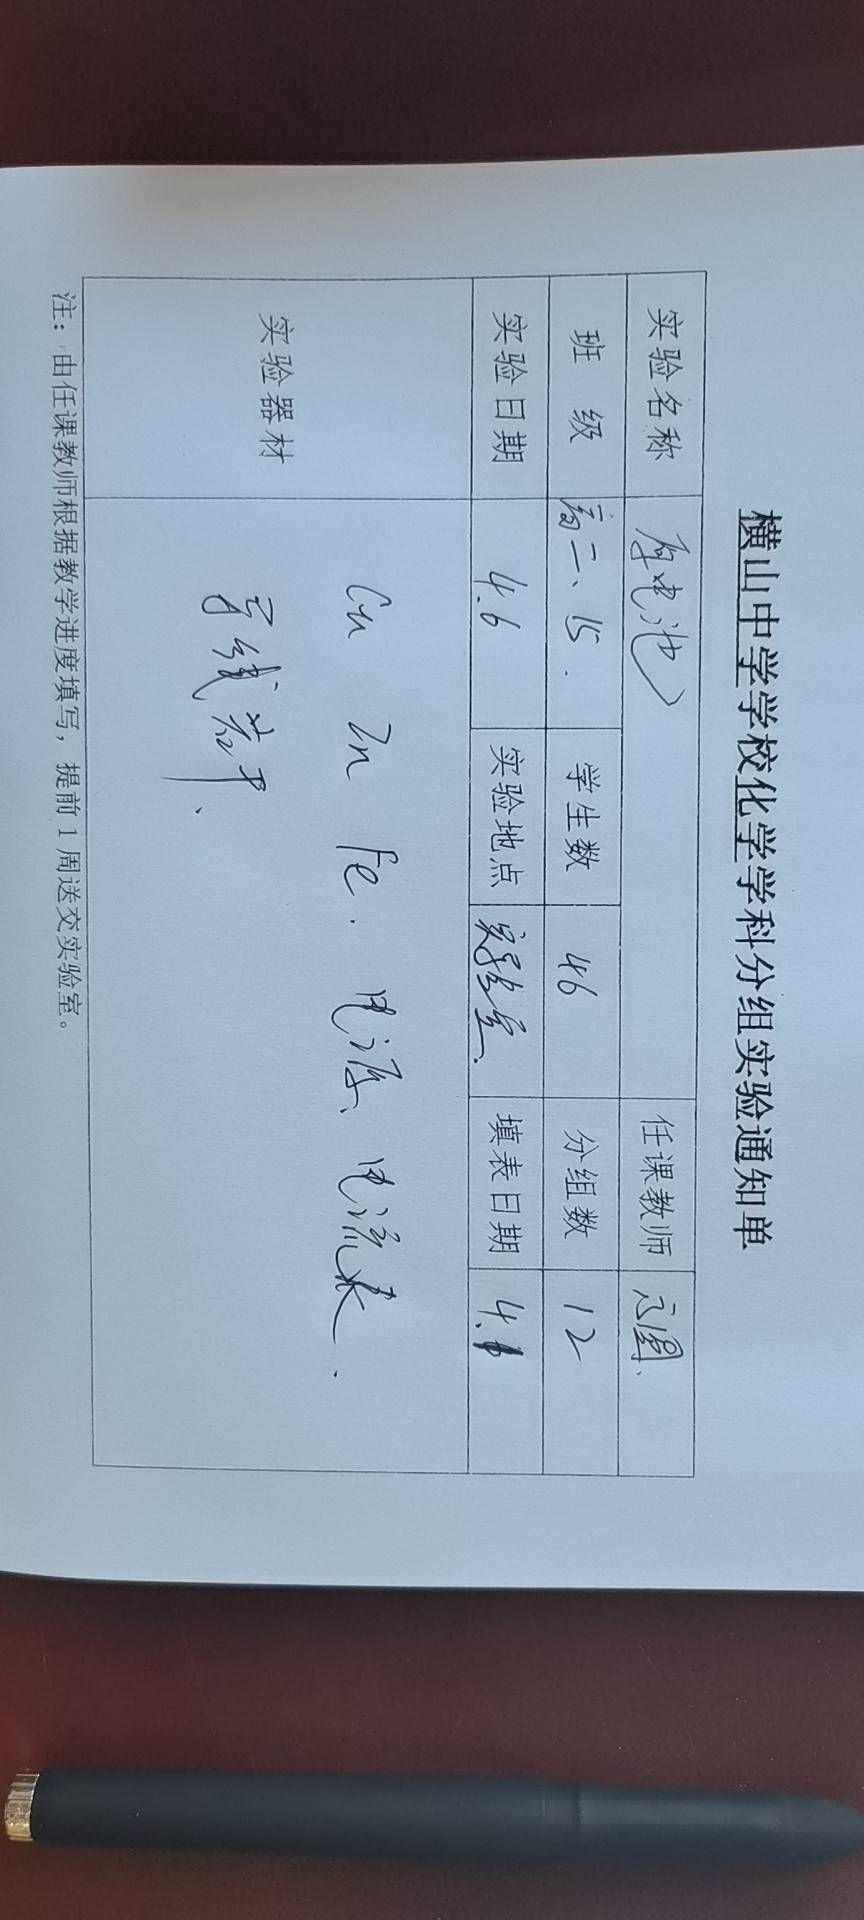 横山中学学校化学学科分组实验通知单
实验名称 原电池 任课教师
班 级 高二、15. 学生数 46 分组数 12
实验日期 4.6 实验地点 实验室. 填表日期 4.1
实验器材 Cu Zn Fe. 电源、电流表.
导线若干、
注：由任课教师根据教学进度填写，提前1周送交实验室。